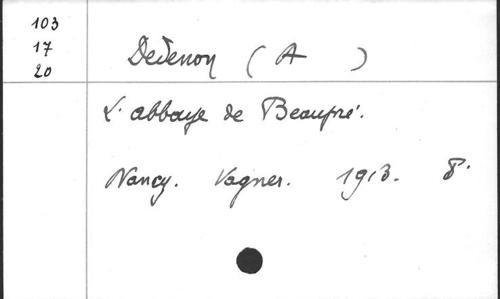 103
17
20
Dedenon (A )
L'abbaye de Beaupré.
Nancy. Vagner. 1913. 8°.